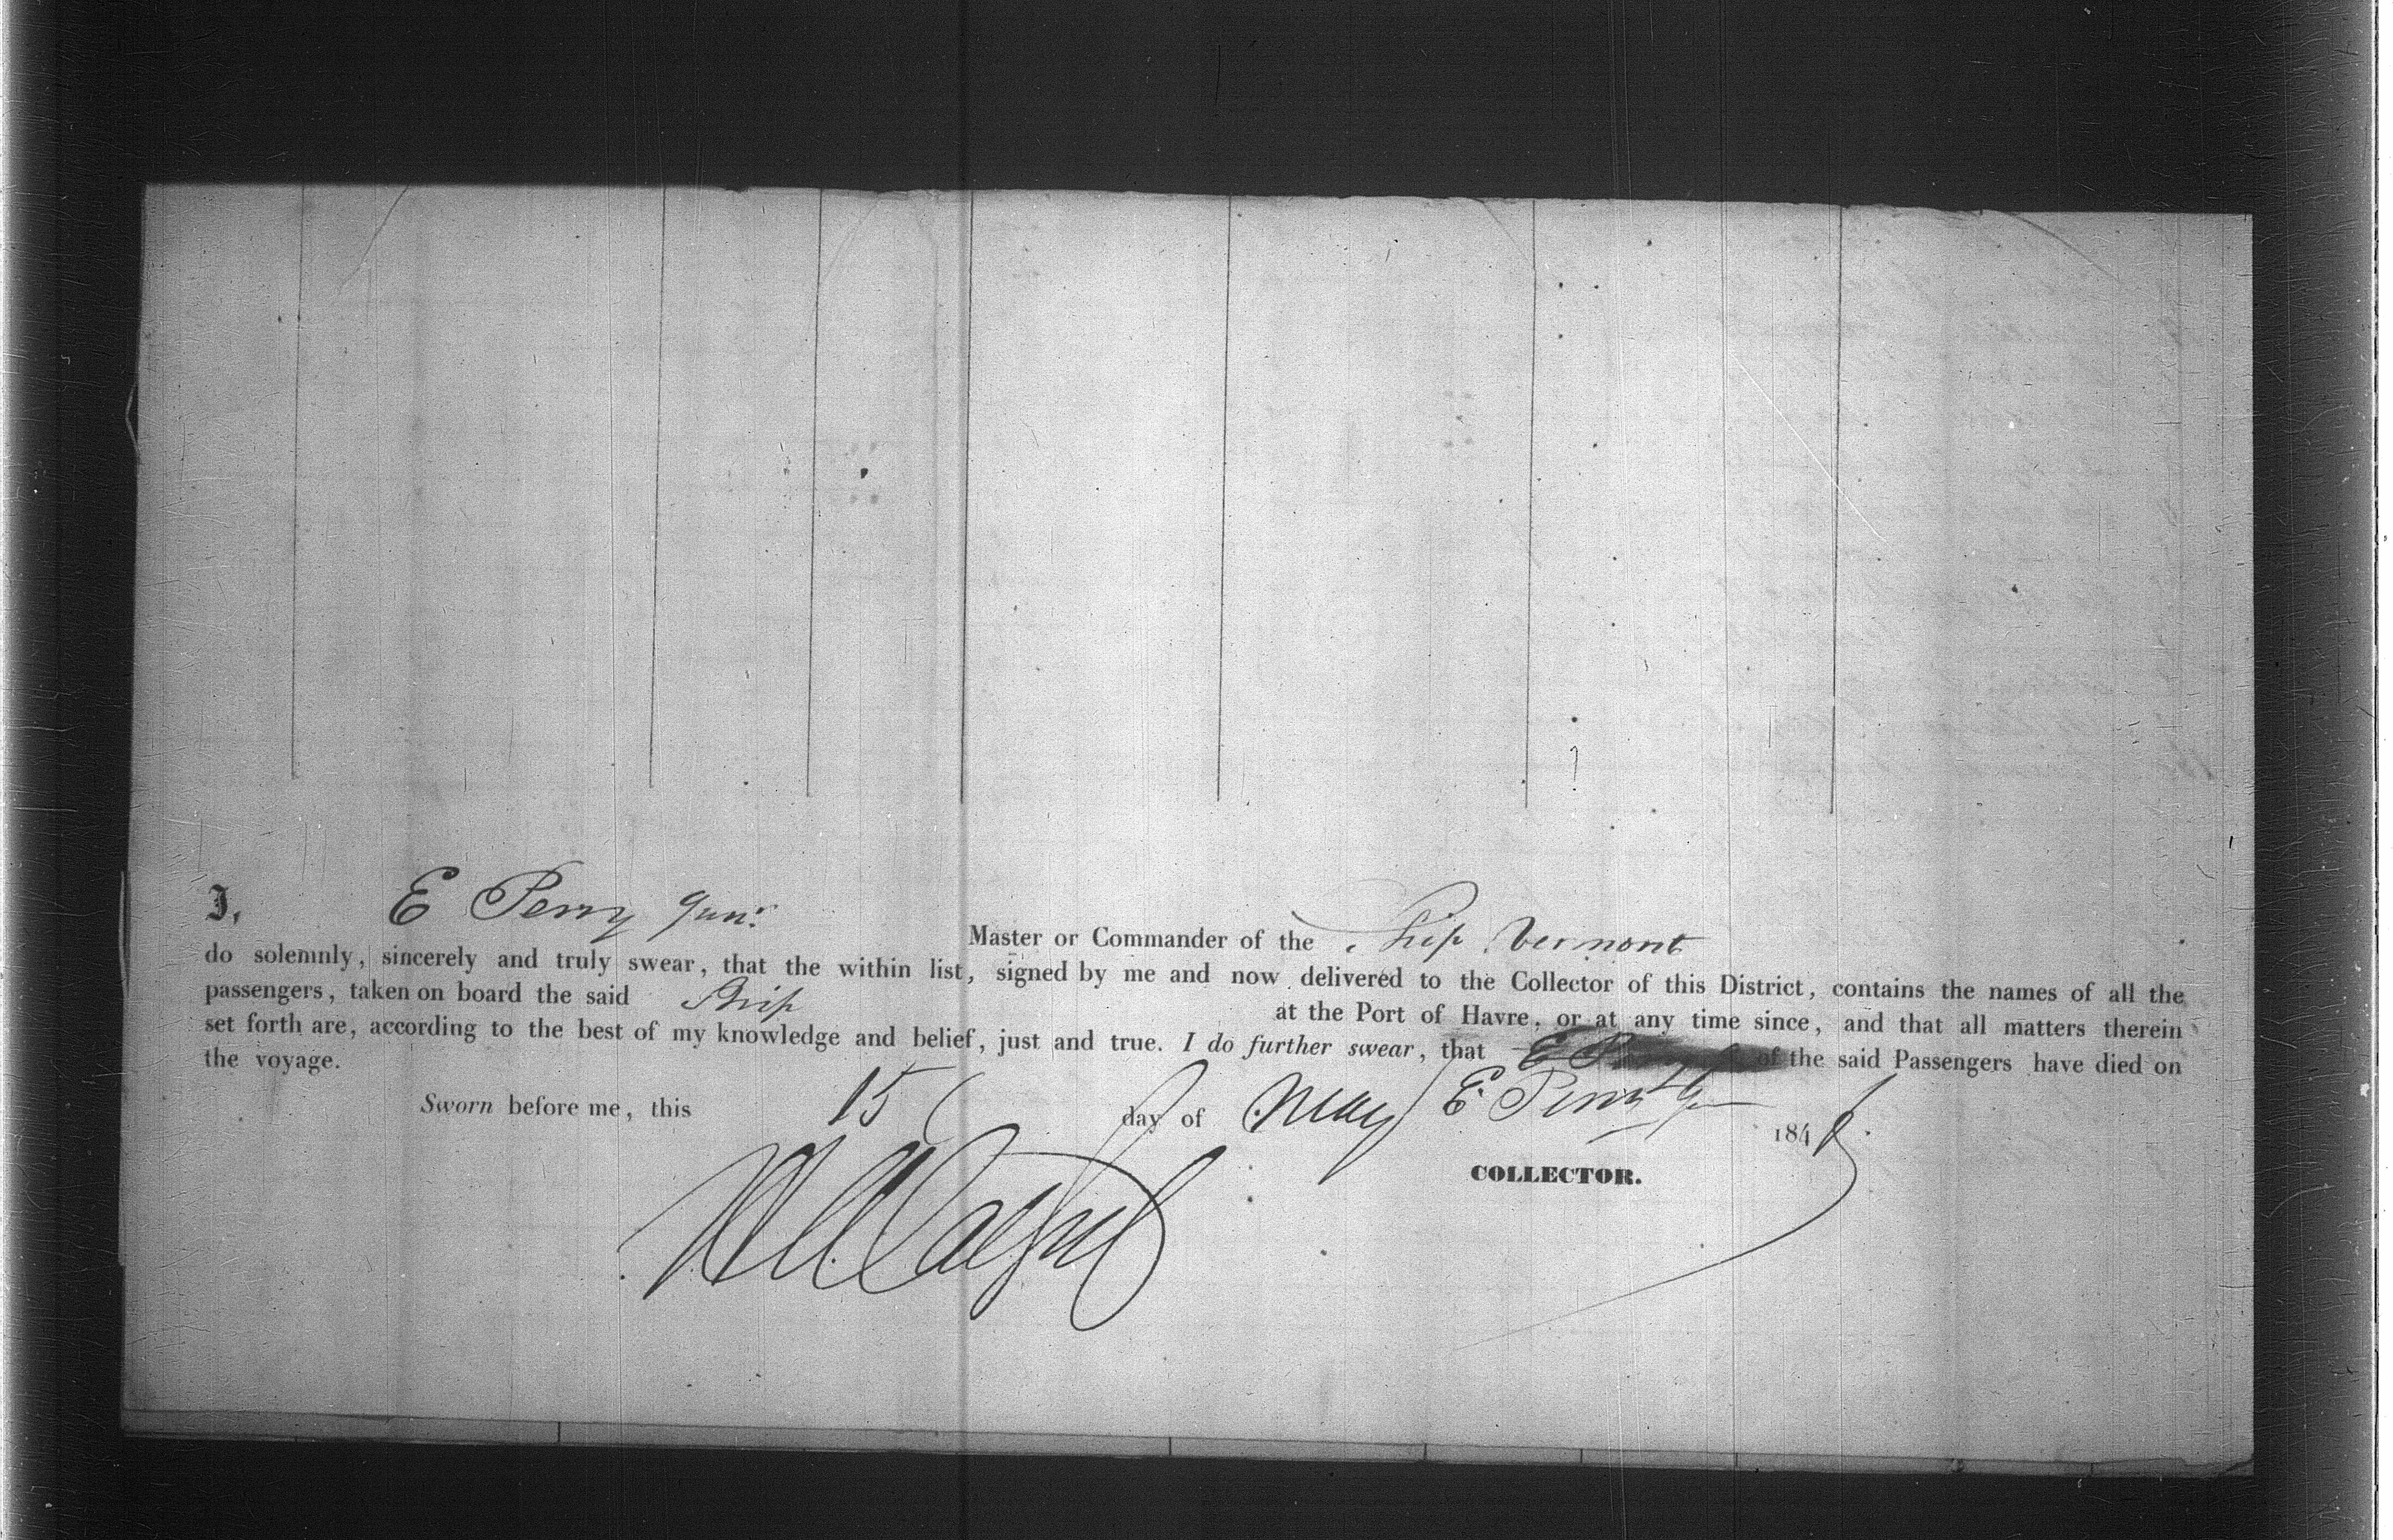 I, E Perry Junr Master or Commander of the Ship Vermont
do solemnly, sincerely and truly swear, that the within list, signed by me and now delivered to the Collector of this District, contains the names of all the
passengers, taken on board the said Ship at the Port of Havre, or at any time since, and that all matters therein
set forth are, according to the best of my knowledge and belief, just and true. I do further swear, that of the said Passengers have died on
the voyage.
E. Perry Jr
Sworn before me, this 15 day of May 184
COLLECTOR.